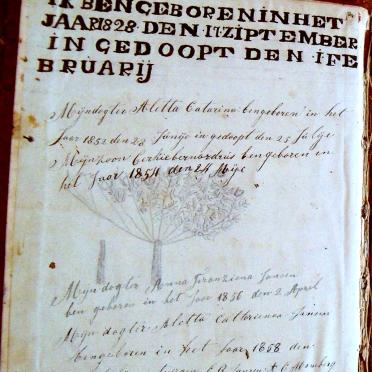 IK BEN GEBOREN IN HET
JAAR 1828 DEN 11 ZIPTEMBER
IN GEDOOPT DEN 1 FE
BRUARIJ
Mijn dogter Aletta Catarina ben geboren in het
Jaar 1852 den 28 Junij in gedoopt den 25 Julije
Mijn zoon ben geboren in
het Jaar 1854 den 24 Mije
Mijn dogter Anna Franziena Jansen
ben geboren in het Jaar 1856 den 2 April
Mijn dogter Aletta Catharina Jansen
ben geboren in het Jaar 1858 den